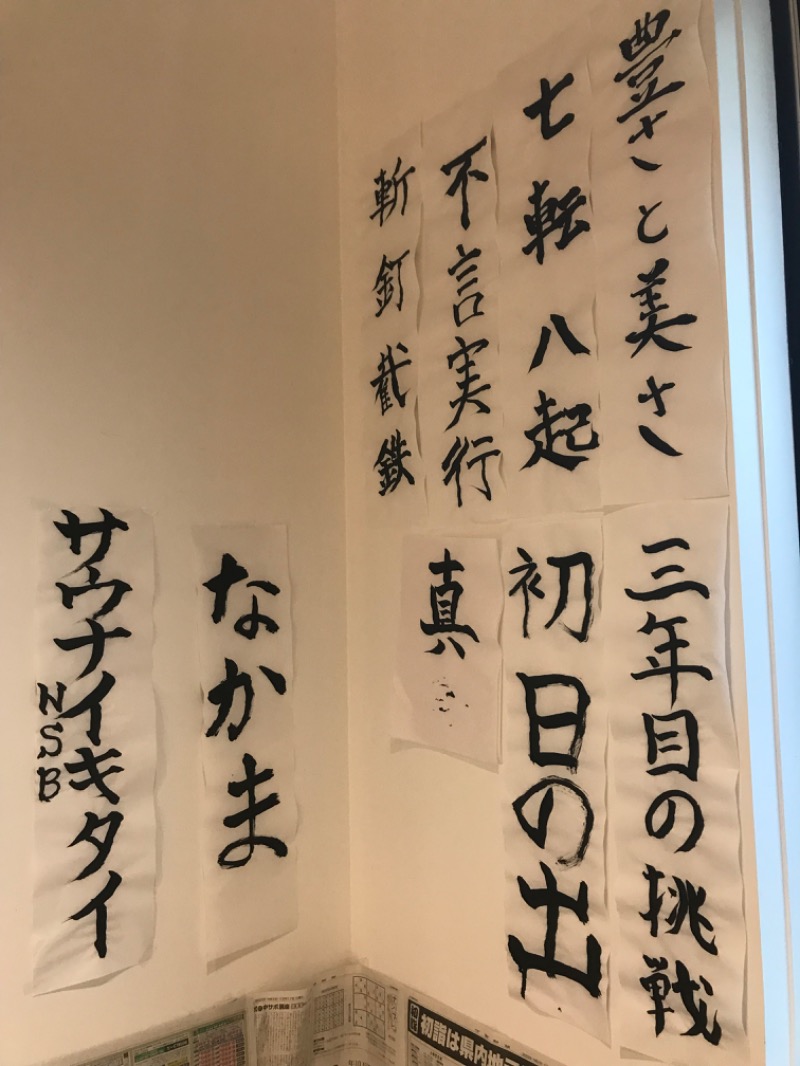 豊さと美さ
七転八起
不言実行
斬釘截鉄
三年目の挑戦
初日の出
真
なかま
サウナイキタイ
NSB
初詣は県内地